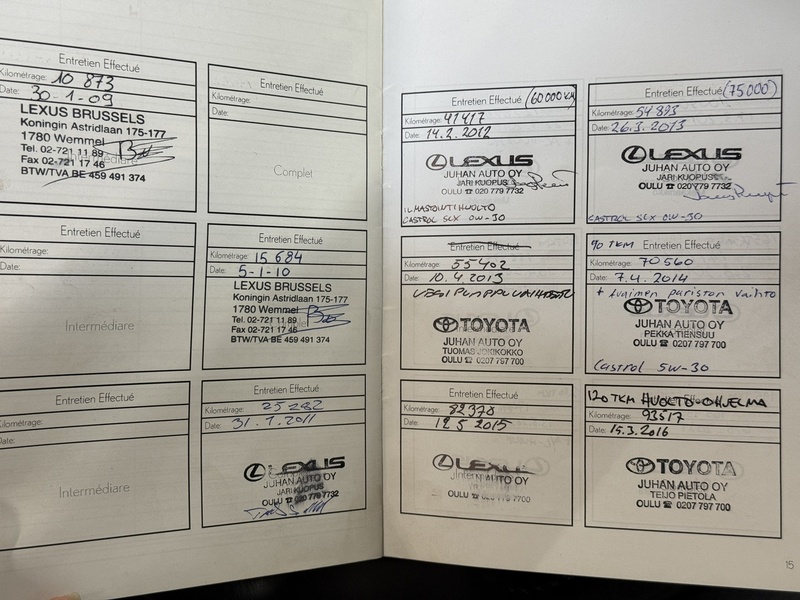 Entretien Effectué
Kilométrage: 10 873
Date: 30-1-09
LEXUS BRUSSELS
Koningin Astridlaan 175-177
1780 Wemmel
Tel. 02-721 11 89
Fax 02-721 17 46
BTW/TVA BE 459 491 374
Entretien Effectué
Kilométrage:
Date:
Complet
Entretien Effectué
Kilométrage:
Date:
Intermédiare
Entretien Effectué
Kilométrage: 15 684
Date: 5-1-10
LEXUS BRUSSELS
Koningin Astridlaan 175-177
1780 Wemmel
Tel. 02-721 11.89
Fax 02-721 17 46
BTW/TVA BE 459 491 374
Entretien Effectué
Kilométrage:
Date:
Intermédiare
Entretien Effectué
Kilométrage: 25 282
Date: 31.7.2011
LEXUS
JUHAN AUTO OY
JARI KUOPUS
OULU ☎ 020 779 7732
Entretien Effectué (60000 KM)
Kilométrage: 41417
Date: 14.2.2012
LEXUS
JUHAN AUTO OY
JARI KUOPUS
OULU ☎ 020 779 7732
ILMASTOINTIHUOLTO
CASTROL SLX 0W-30
Entretien Effectué (75000)
Kilométrage: 54893
Date: 26.3.2013
LEXUS
JUHAN AUTO OY
JARI KUOPUS
OULU ☎ 020 779 7732
CASTROL SLX 0W-30
Entretien Effectué
Kilométrage: 55402
Date: 10.4.2013
VESIPUMPPU VAIHDETTU
TOYOTA
JUHAN AUTO OY
TUOMAS JOKIKOKKO
OULU ☎ 0207 797 700
90 TKM Entretien Effectué
Kilométrage: 70560
Date: 7.4.2014
+ avaimen pariston vaihto
TOYOTA
JUHAN AUTO OY
PEKKA TIENSUU
OULU ☎ 0207 797 700
Castrol 5W-30
Entretien Effectué
Kilométrage: 82370
Date: 12 5 2015
LEXUS
Intermédiare
JUHAN AUTO OY
OULU ☎ 020 779 7700
120 TKM HUOLTO-OHJELMA
Kilométrage: 93517
Date: 15.3.2016
TOYOTA
JUHAN AUTO OY
TEIJO PIETOLA
OULU ☎ 0207 797 700
15